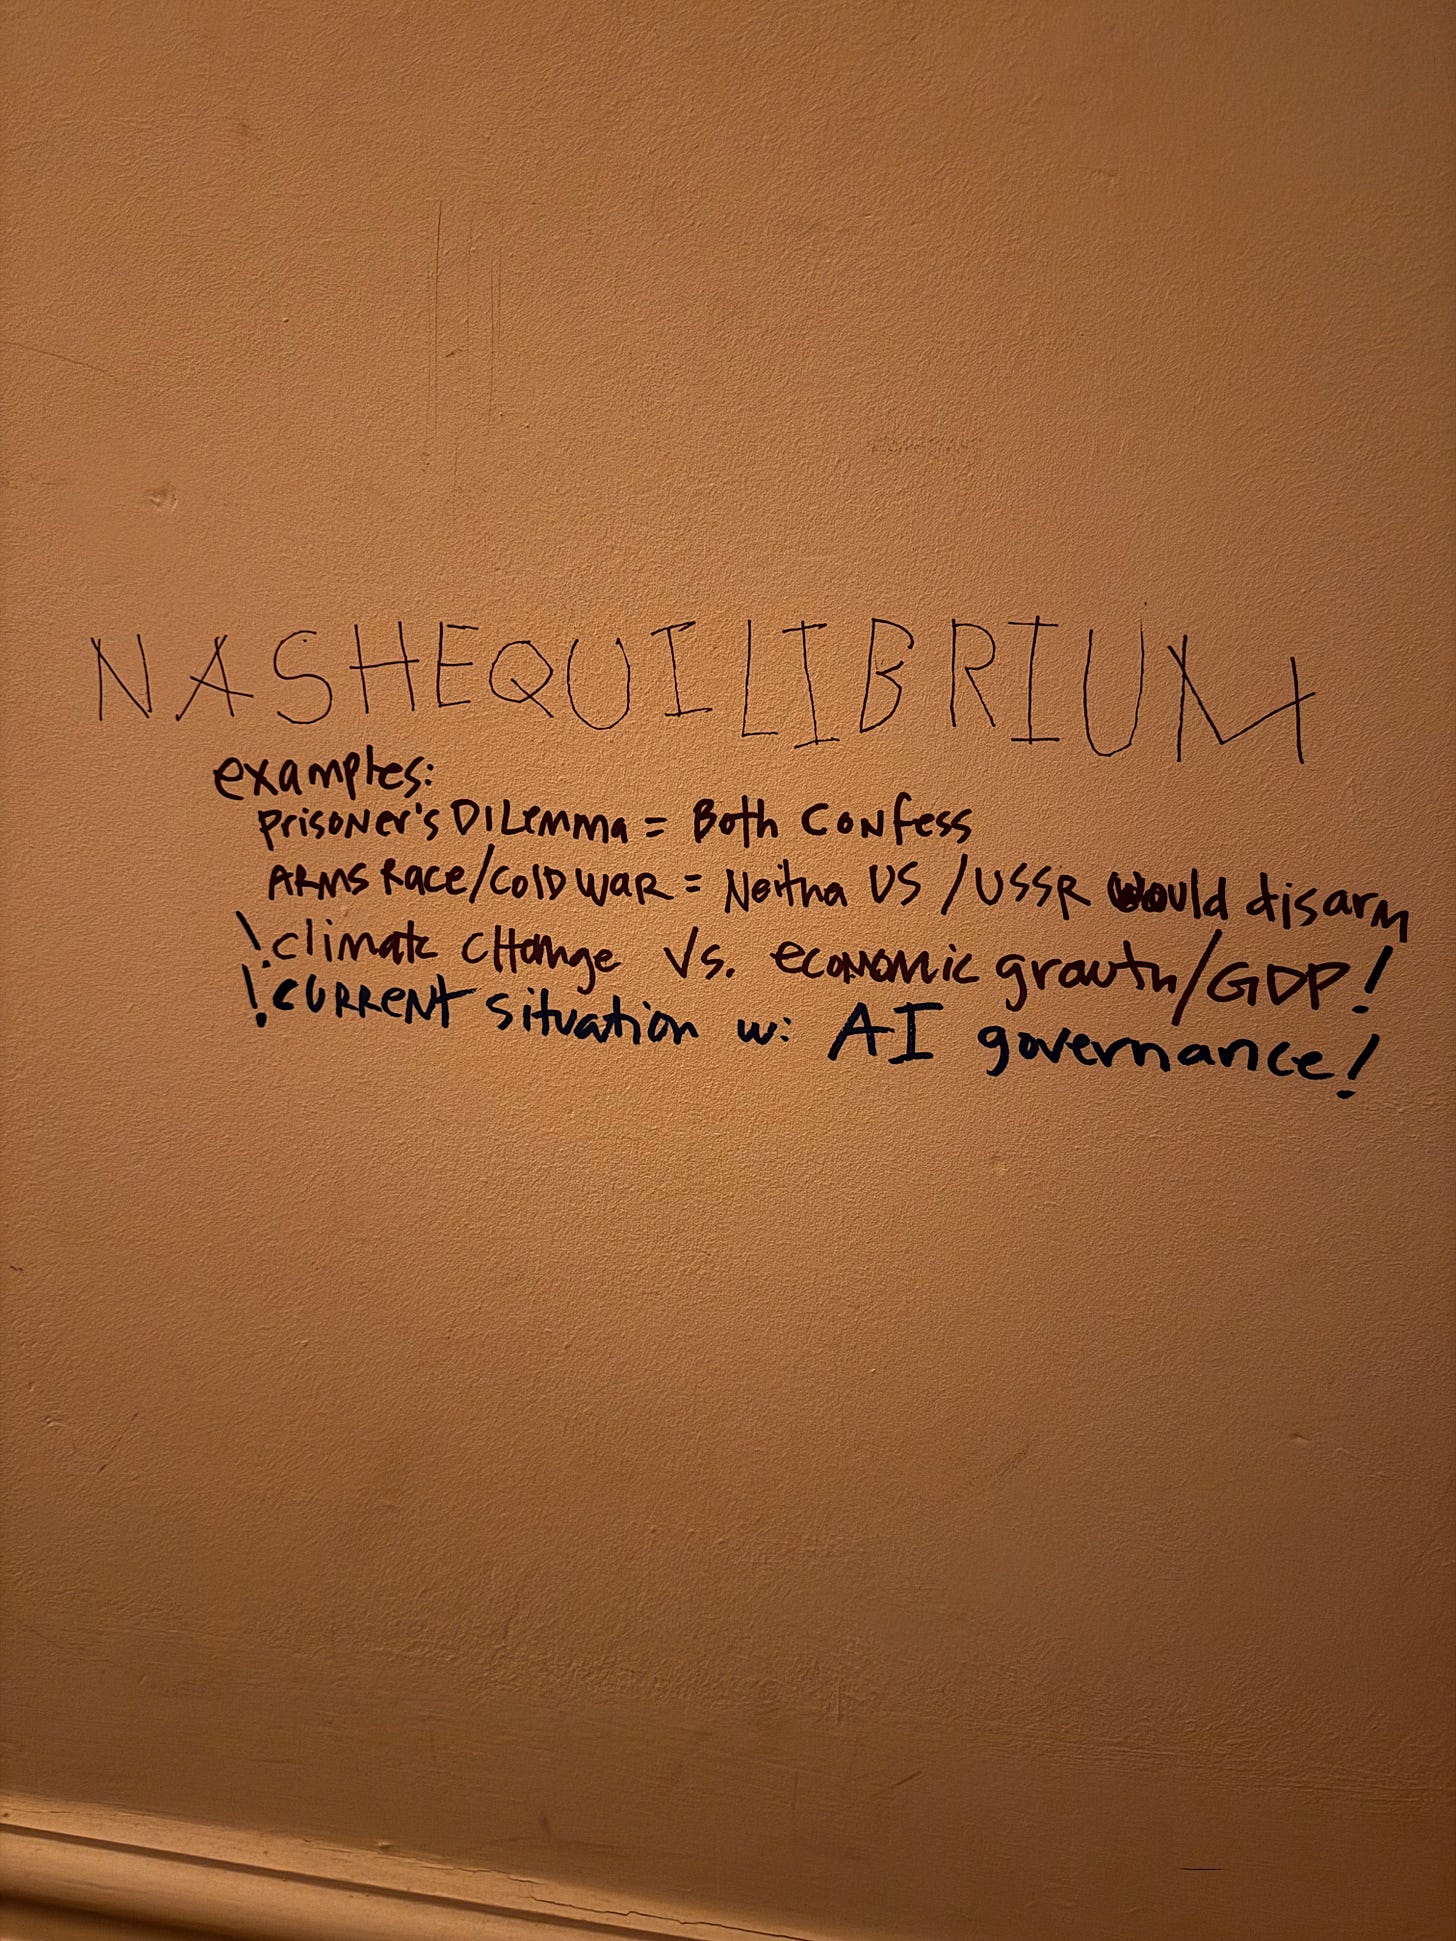 NASHEQUILIBRIUM
examples:
prisoner's DILemma = Both Confess
ARMS Race/Cold WAR = Neitha US / USSR Would disarm
! climate change Vs. economic growth/GDP!
! CURRENT situation w: AI governance!